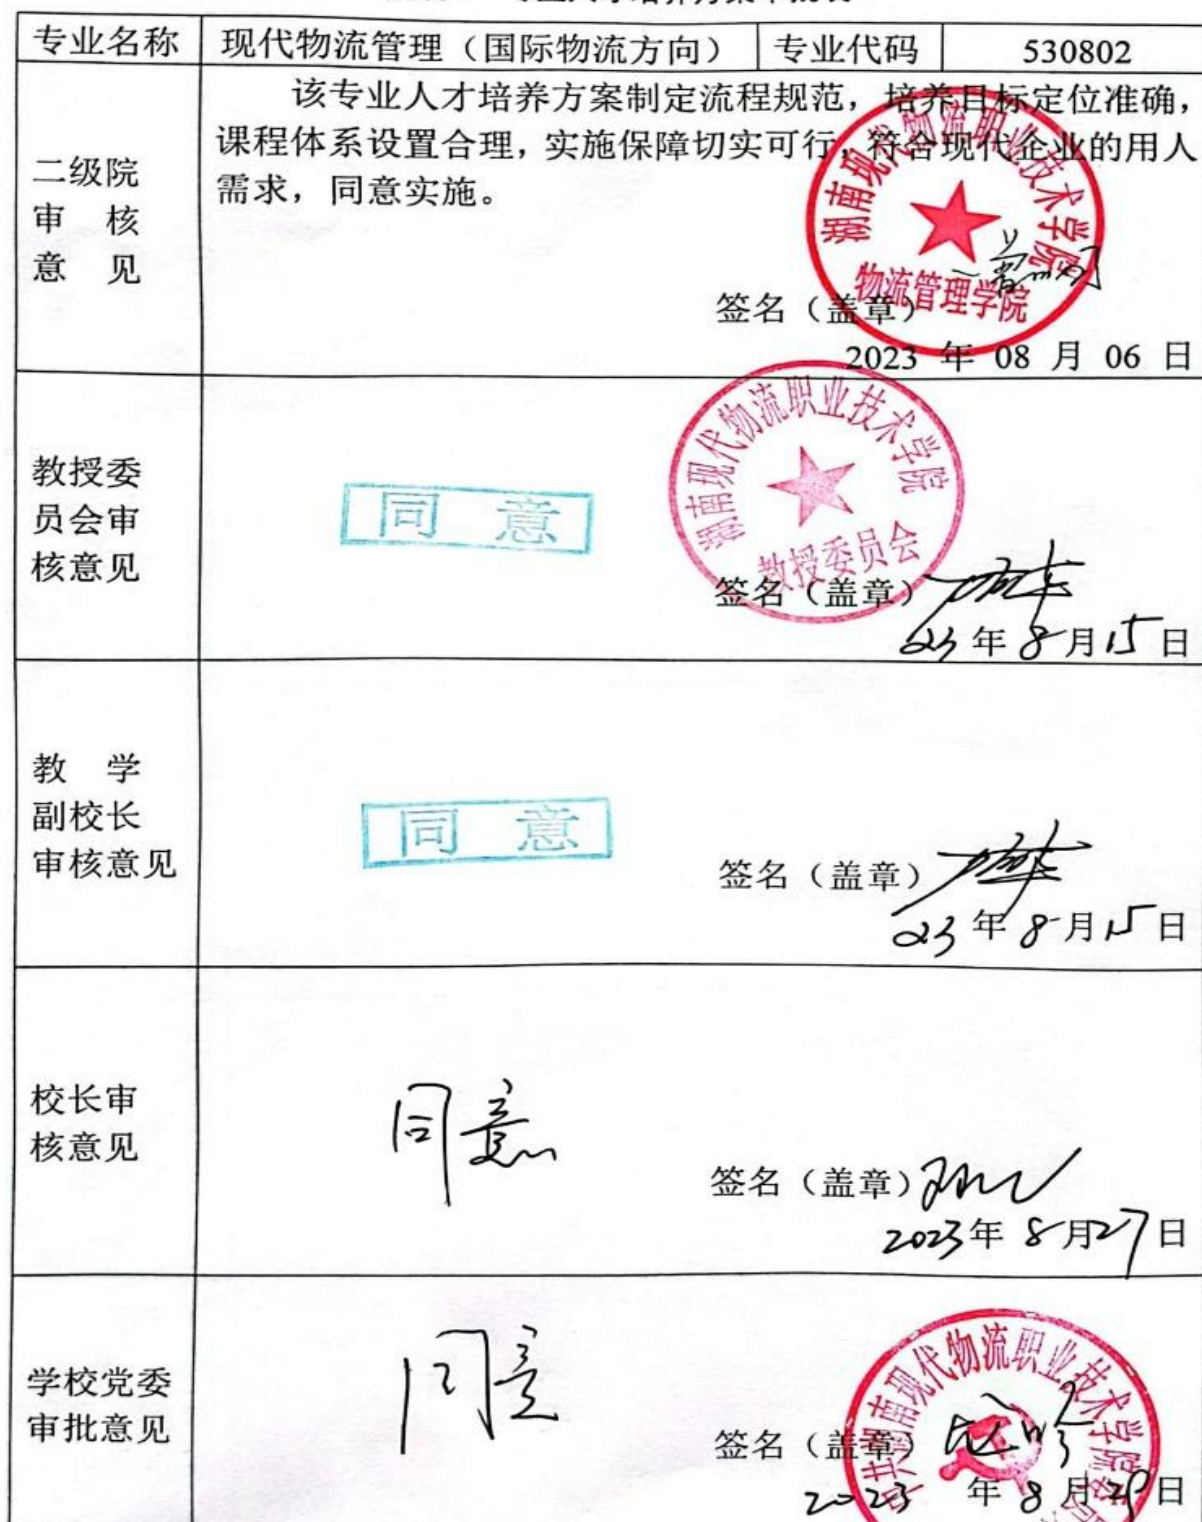 专业名称 现代物流管理（国际物流方向） 专业代码 530802
二级院
审 核
意 见
该专业人才培养方案制定流程规范，培养目标定位准确，
课程体系设置合理，实施保障切实可行，符合现代企业的用人
需求，同意实施。
湖南现代物流职业技术学院
物流管理学院
签名（盖章）
2023 年 08 月 06 日
教授委
员会审
核意见
同 意
湖南现代物流职业技术学院
教授委员会
签名（盖章）
23年8月15日
教 学
副校长
审核意见
同 意
签名（盖章）
23年8月15日
校长审
核意见
同意
签名（盖章）
2023年8月27日
学校党委
审批意见
同意
中共湖南现代物流职业技术学院委员
签名（盖章）
2023年8月29日